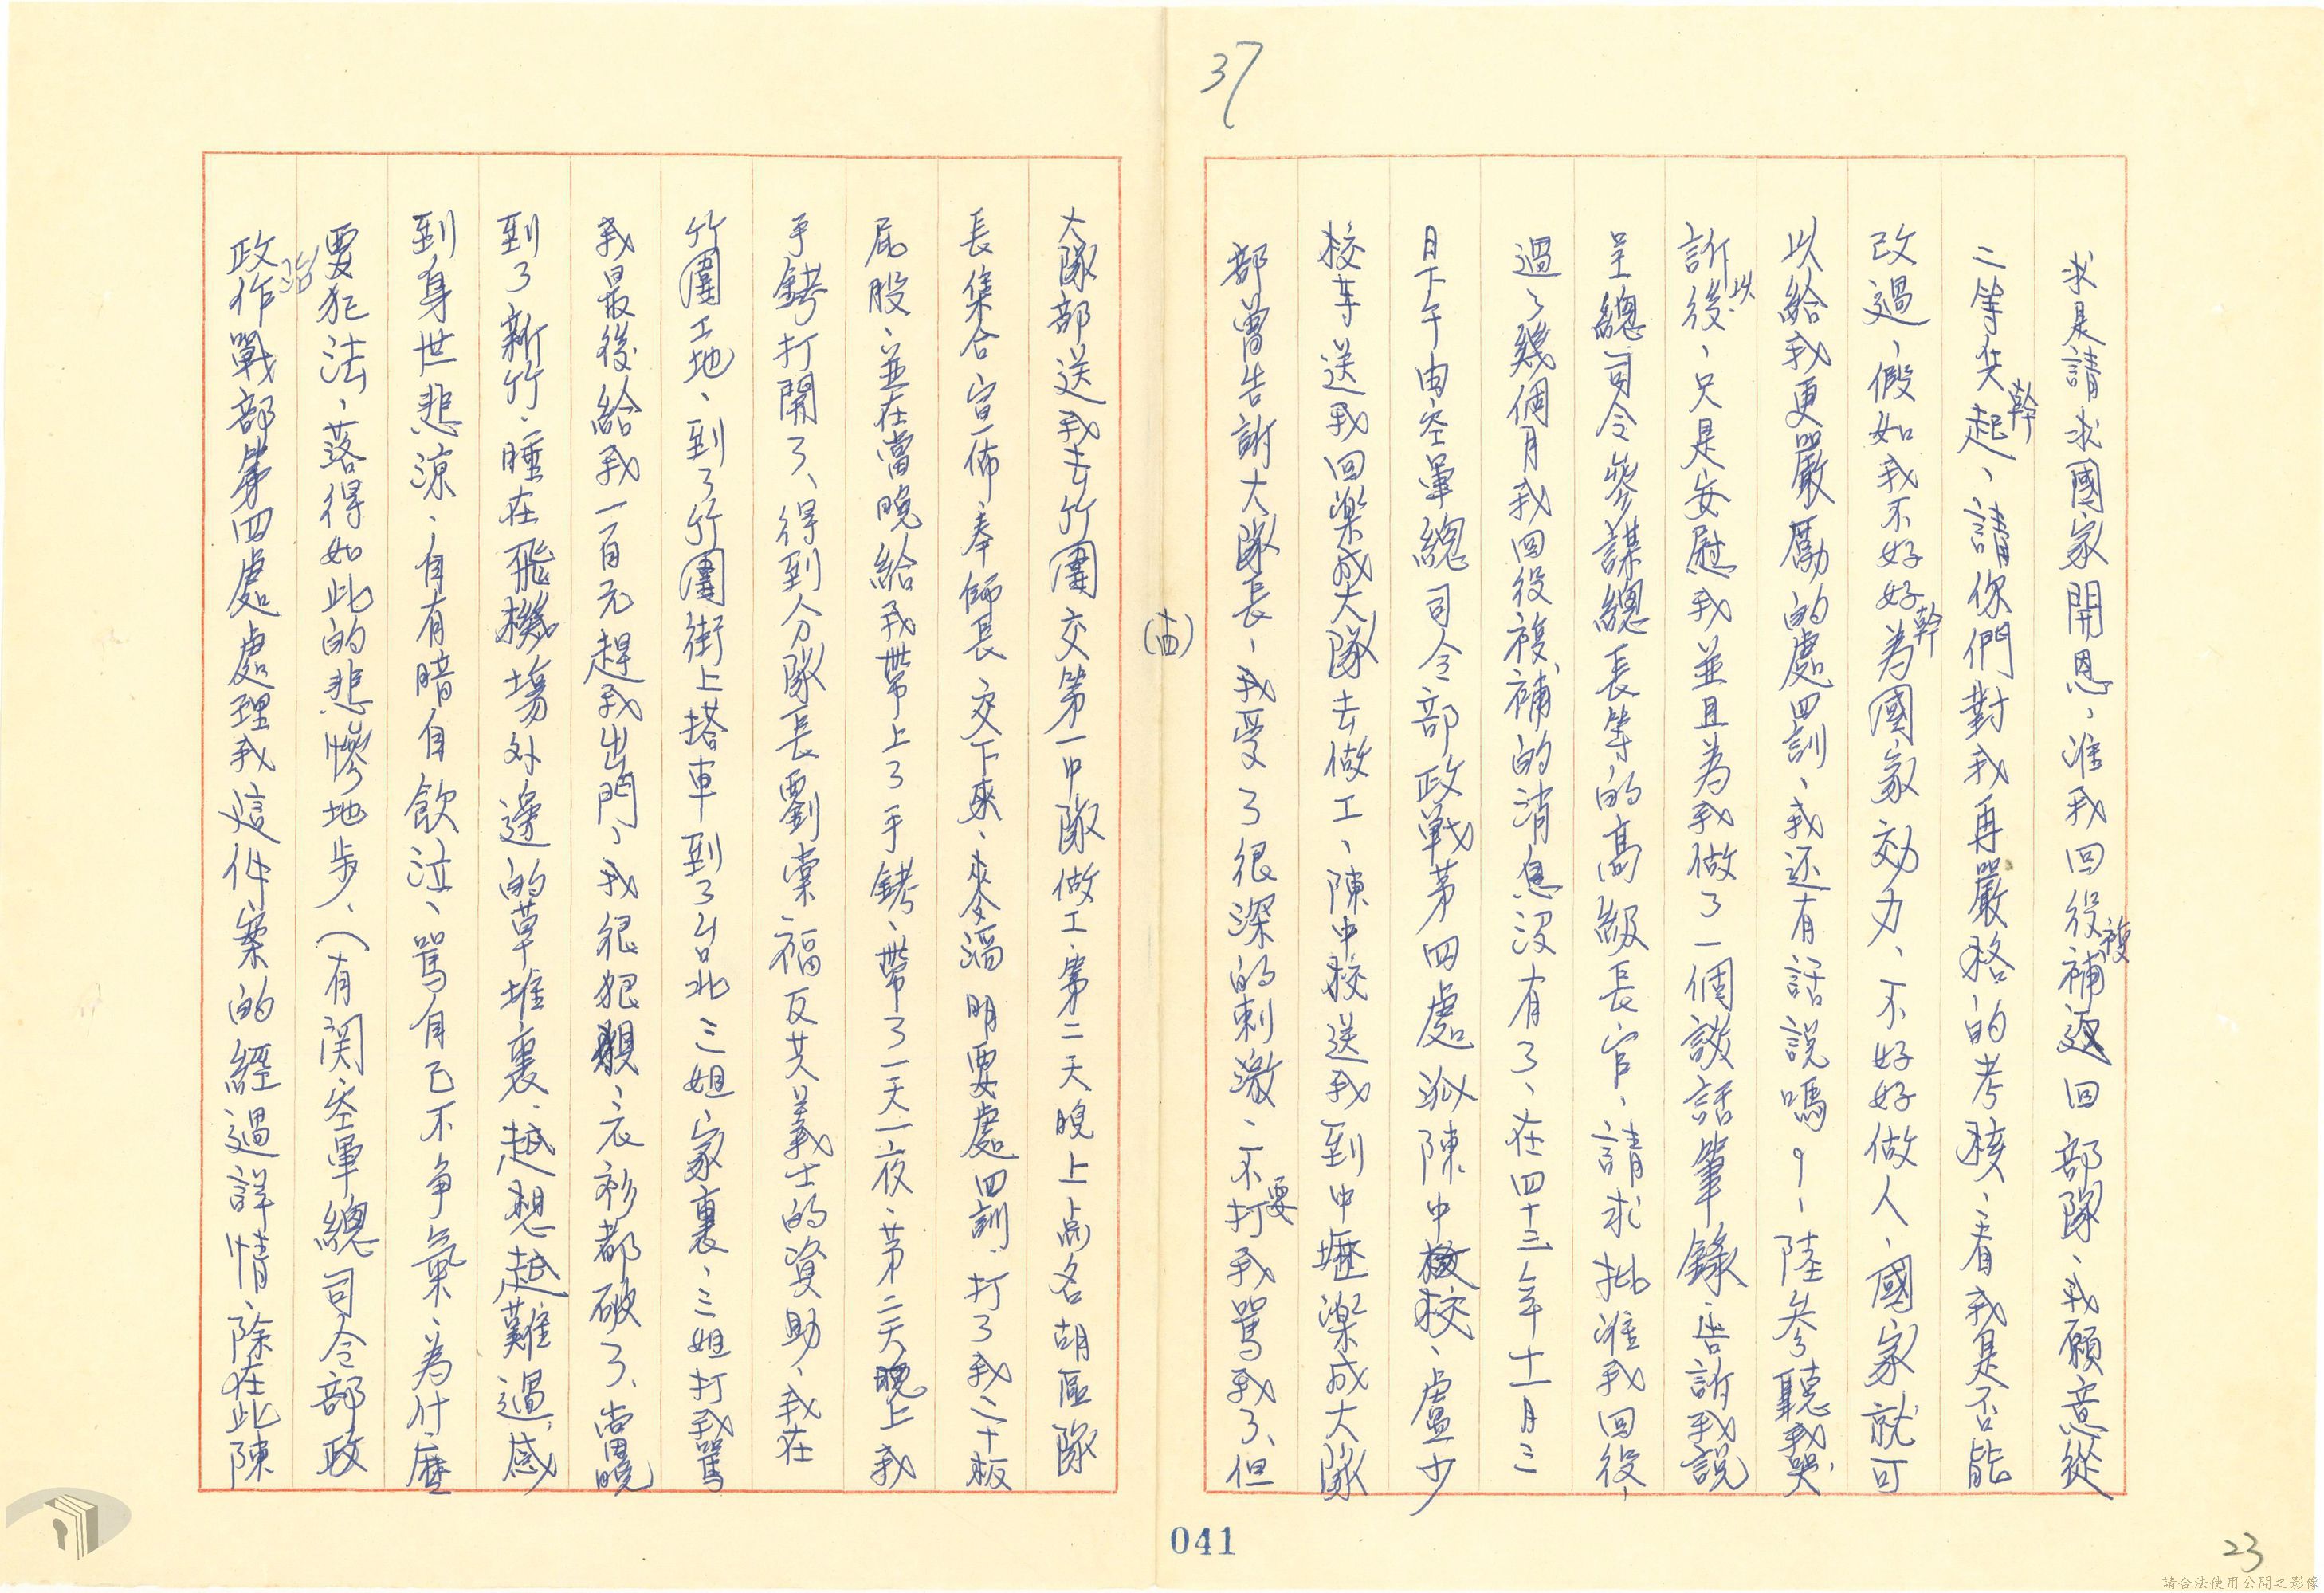 37
求是請求國家開恩、准我回役複補返回部隊、我願意從
二等兵幹起、請你們對我再嚴格的考核、看我是否能
改過、假如我不好好幹為國家効力、不好好做人、國家就可
以給我更嚴厲的處罰、我还有話說嗎？、陸参聽我哭
訴以後、只是安慰我並且為我做了一個談話筆錄告訴我說
呈總司令參謀總長等的高級長官、請求批准我回役、
過了幾個月我回役複補的消息沒有了、在四十三年十一月三
日下午由空軍總司令部政戰第四處派陳中校、盧少
校車送我回樂成大隊去做工、陳中校送我到中壢樂成大隊
部曾告謝大隊長、我受了很深的刺激、不要打我罵我了、但
(十四)
大隊部送我去竹圍交第一中隊做工、第二天晚上点名胡區隊
長集合宣佈奉師長交下來、麥滔明要處罰、打了我二十板
屁股、並在當晚給我帶上了手銬、帶了一天一夜、第二天晚上我
手銬打開了、得到分隊長劉棠福反共義士的資助、我在
竹圍工地、到了竹圍街上搭車到了台北三姐家裏、三姐打我罵
我最後給我一百元趕我出門、我很狼狽、衣衫都破了、當晚
到了新竹、睡在飛機場外邊的草堆裏、越想越難過、感
到身世悲涼、自有暗自飲泣、罵自己不争氣、為什麼
要犯法、落得如此的悲慘地步、（有関空軍總司令部政
政治作戰部第四處處理我這件案的經過詳情、除在此陳
041
23
請合法使用公開之影像